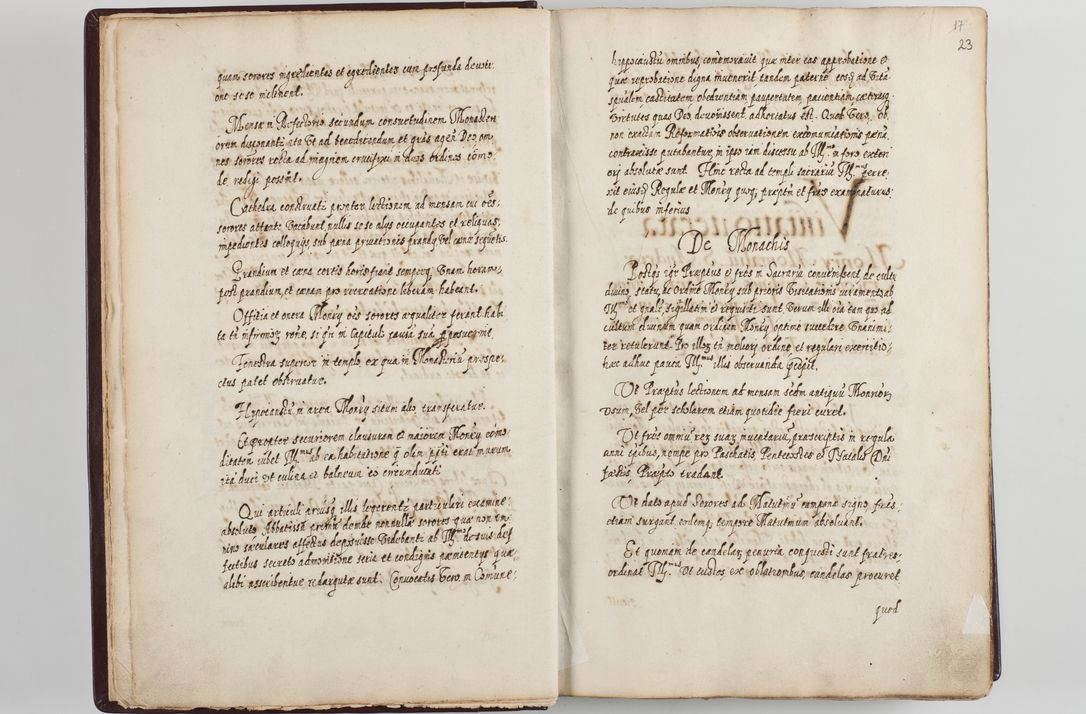 quam sorores ingredientes et egredientes cum profunda devoti
one sese inclinent.
Mensæ in Refectorio secundum consuetudinem Monaster
iorum disponantur ita ut ad benedicendum et grãs agen Deo om
nes sorores recta ad imaginem crucifixi in duos ordines cõmo
de redigi possint.
Cathedra construatur propter lectionem ad mensam cui oẽs
sorores attente vacabunt, nullis sese alijs occupantes et reliquas
impedientes colloquijs, sub pæna privationis prandij vel cænæ sequẽtis.
Prandium et cæna certis horis fiant semperq. unam horam
post prandium, et cænam pro recreatione liberam habeant.
Officia et onera Monrij oẽs sorores æqualiter ferant habi
ta tñ infirmior. rõne, si qñ in Capitulo causam suã proposuerint.
Fenestra superior in templo ex qua in Monasterium prospe
ctus patet obstruatur.
Hypocaustũ in area Monrij situm alio transferatur.
Et propter securiorem clausuram et maiorem Monrij cõmo
ditatem iubet Ill.mus ab ea habitatione q̃ olim ppti erat murum
ita duci ut culina et balneum eo circumducatur
Qui articuli priusq. illis legerentur particulari examine
absoluto Abbatissa primũ deinde nonnullæ sorores quæ non om
nino sæculares affectus deposuisse videbantur ab Ill.mo de suis def
fectibus secreto admonitione seria et condignis pænitentijs quæ
alibi asscribentur redargutæ sunt. Convocatis vero in Comune
17
23
hippocaustũ omnibus, comemoravit quæ inter eas approbatione et
quæ reprobatione digna invenerit tandem paterne eos ad
castitatem obedientiam paupertatem patientiam, cæterasq.
virtutes quas Deo devovissent adhortatus est. Quod vero ob
non exactam Reformationis observationem excomunicationis pænã
contraxisse putabantur in ipso iam discessu ab Ill.mo in foro exteri
ori absolutæ sunt. Hinc recta ad templi sacrariũ Ill.mus perre
xit eiusdem Regulæ et Monrij quoq. præptm et frẽs examinaturus
de quibus inferius
De Monachis
Postq. igr Præptus et frẽs in Sacraria convenissent, de cultu
divino, statu, ac ordine Monrij sub prioris visitationis iuramento ab
Ill.mo et gnalr̃ sigillatim et requisiti sunt. Verum illi oĩa tam quo ad
cultum divinum quam ordinem Monrij optime succedere unanimi
ter retulerunt. Pro illor. tñ meliori ordine et regulari exercitio
hæc adhuc pauca Ill.mus illis observanda præcepit.
Ut Præptus lectionem ad mensam scđm antiquũ Monrior
usum, vel per scholarem etiam quotidie fieri curet.
Ut frẽs omniũ rer. suar. inventariũ, præscriptis in regula
anni tp̃ibus, nempe pro Paschatis, Pentecostes et Natalis Dni
fæstis, Præpto tradant.
Ut dato apud sorores ad Matutinũ campanæ signo frẽs
etiam surgant, eodemq. tempore Matutinum absolvant.
Et quoniam de candelar. penuria conquesti sunt fratres
ordinat Ill.mus ut custos ex oblationibus, candelas procuret
quod